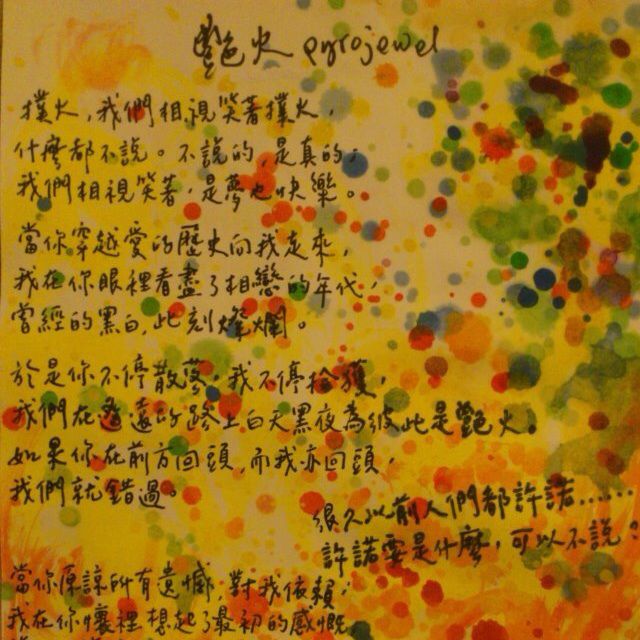 艷火 pyrojewel
撲火，我們相視笑著撲火，
什麼都不說。不說的，是真的，
我們相視笑著，是夢也快樂。
當你穿越愛的歷史向我走來，
我在你眼裡看盡了相戀的年代，
曾經的黑白，此刻燦爛。
於是你不停散落，我不停拾獲，
我們在遙遠的路上白天黑夜為彼此是艷火。
如果你在前方回頭，而我亦回頭，
我們就錯過。
很久以前人們都許諾......
許諾要是什麼，可以不說！
當你原諒所有遺憾，對我依賴，
我在你懷裡想起了最初的感慨